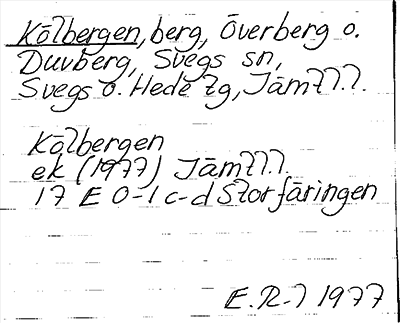 Kölbergen, berg, Överberg o.
Duvberg, Svegs sn,
Svegs o. Hede tg, Jämtl.l.
Kölbergen
ek (1977) Jämtl.l.
17 E 0-1 c-d Storfäringen
E.R-l 1977